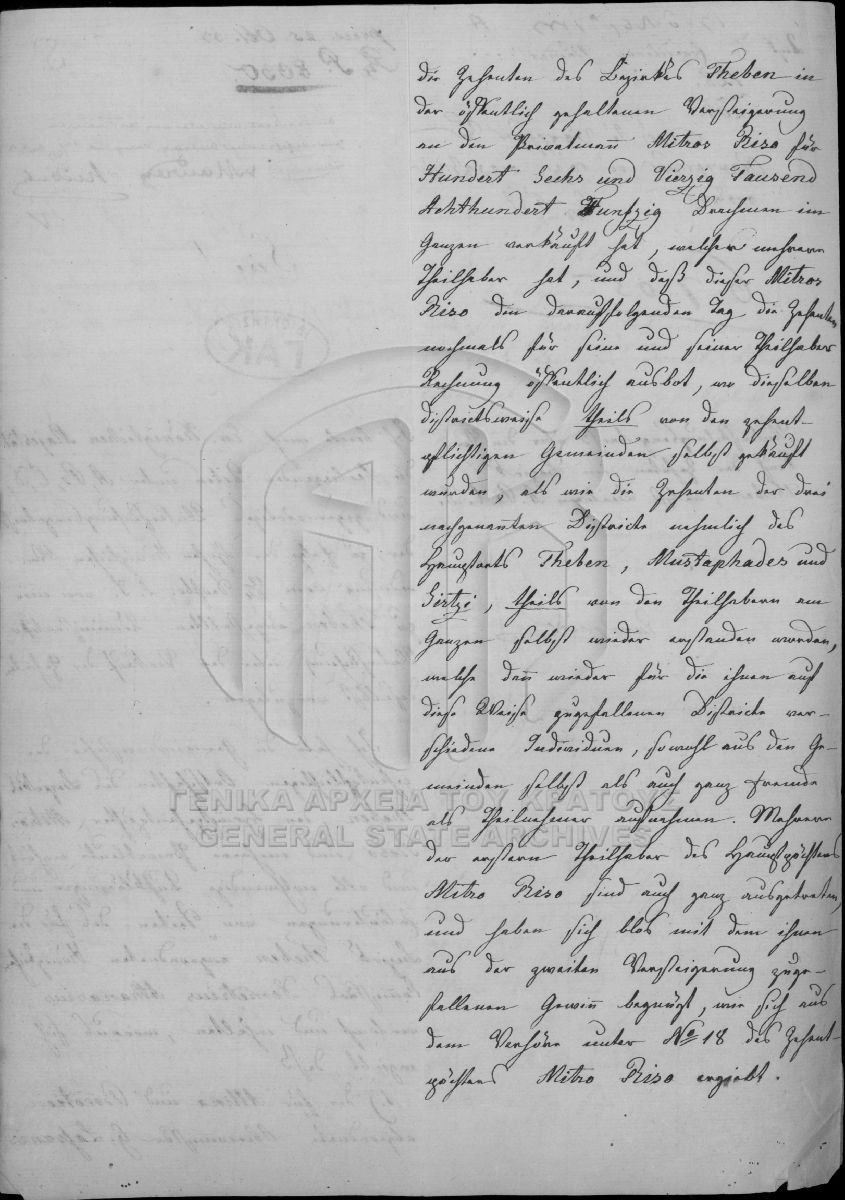 die Zehenten des Bezirkes Theben in
der öffentlich gehaltenen Versteigerung
an den Privatmañ Mitros Riso für
Hundert Sechs und Vierzig Tausend
Achthundert Funfzig Drachmen im
Ganzen verkäuft hat, welcher mehrere
Theilhaber hat, und daß dieser Mitros
Riso den darauffolgenden Tag die Zehenten
nochmals für seine und seiner Theilhaber
Rechnung öffentlich ausbot, wo dieselben
districtsweise theils von den zehent-
pflichtigen Gemeinden selbst gekäuft
wurden, als wie die Zehenten der drei
nachgenañten Districte nehmlich des
Hauptorts Theben, Mustaphades und
Sirtzi, theils von den Theilhabern am
Ganzen selbst wieder erstanden worden,
welche dañ wieder für die ihnen auf
diese Weise zugefallenen Districte ver-
schiedene Individuen, sowohl aus den Ge-
meinden selbst als auch ganz fremde
als Theilnehmer aufnehmen. Mehrere
der erstern Theilhaber des Hauptpächters
Mitro Riso sind auch ganz ausgetreten,
und haben sich blos mit dem ihnen
aus der zweiten Versteigerung zuge-
fallenen Gewiñ begnügt, wie sich aus
dem Verhöre unter No 18 des Zehent-
pächters Mitro Riso ergiebt.
ΓΕΝΙΚΑ ΑΡΧΕΙΑ ΤΟΥ ΚΡΑΤΟΥΣ
GENERAL STATE ARCHIVES